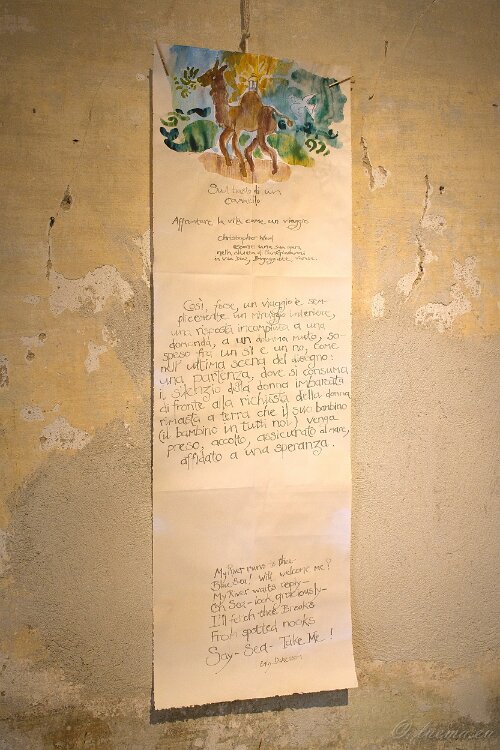 Sul dorso di un
cammello
Affrontare la vita come un viaggio
Christopher
nella
in Via
Così, forse, un viaggio è sem-
plicemente un miraggio interiore,
una risposta incompiuta a una
domanda, a un dilemma muto, so-
speso fra un sì e un no, come
nell'ultima scena del disegno:
una partenza, dove si consuma
il silenzio della donna imbarcata
di fronte alla richiesta della donna
rimasta a terra che il suo bambino
(il bambino in tutti noi) venga
preso, accolto, assicurato al mare,
affidato a una speranza.
My River runs to thee
Blue Sea! Wilt welcome me?
My River waits reply-
Oh Sea- look graciously-
I'll fetch thee Brooks
From spotted nooks
Say- Sea- Take Me!
Dickinson